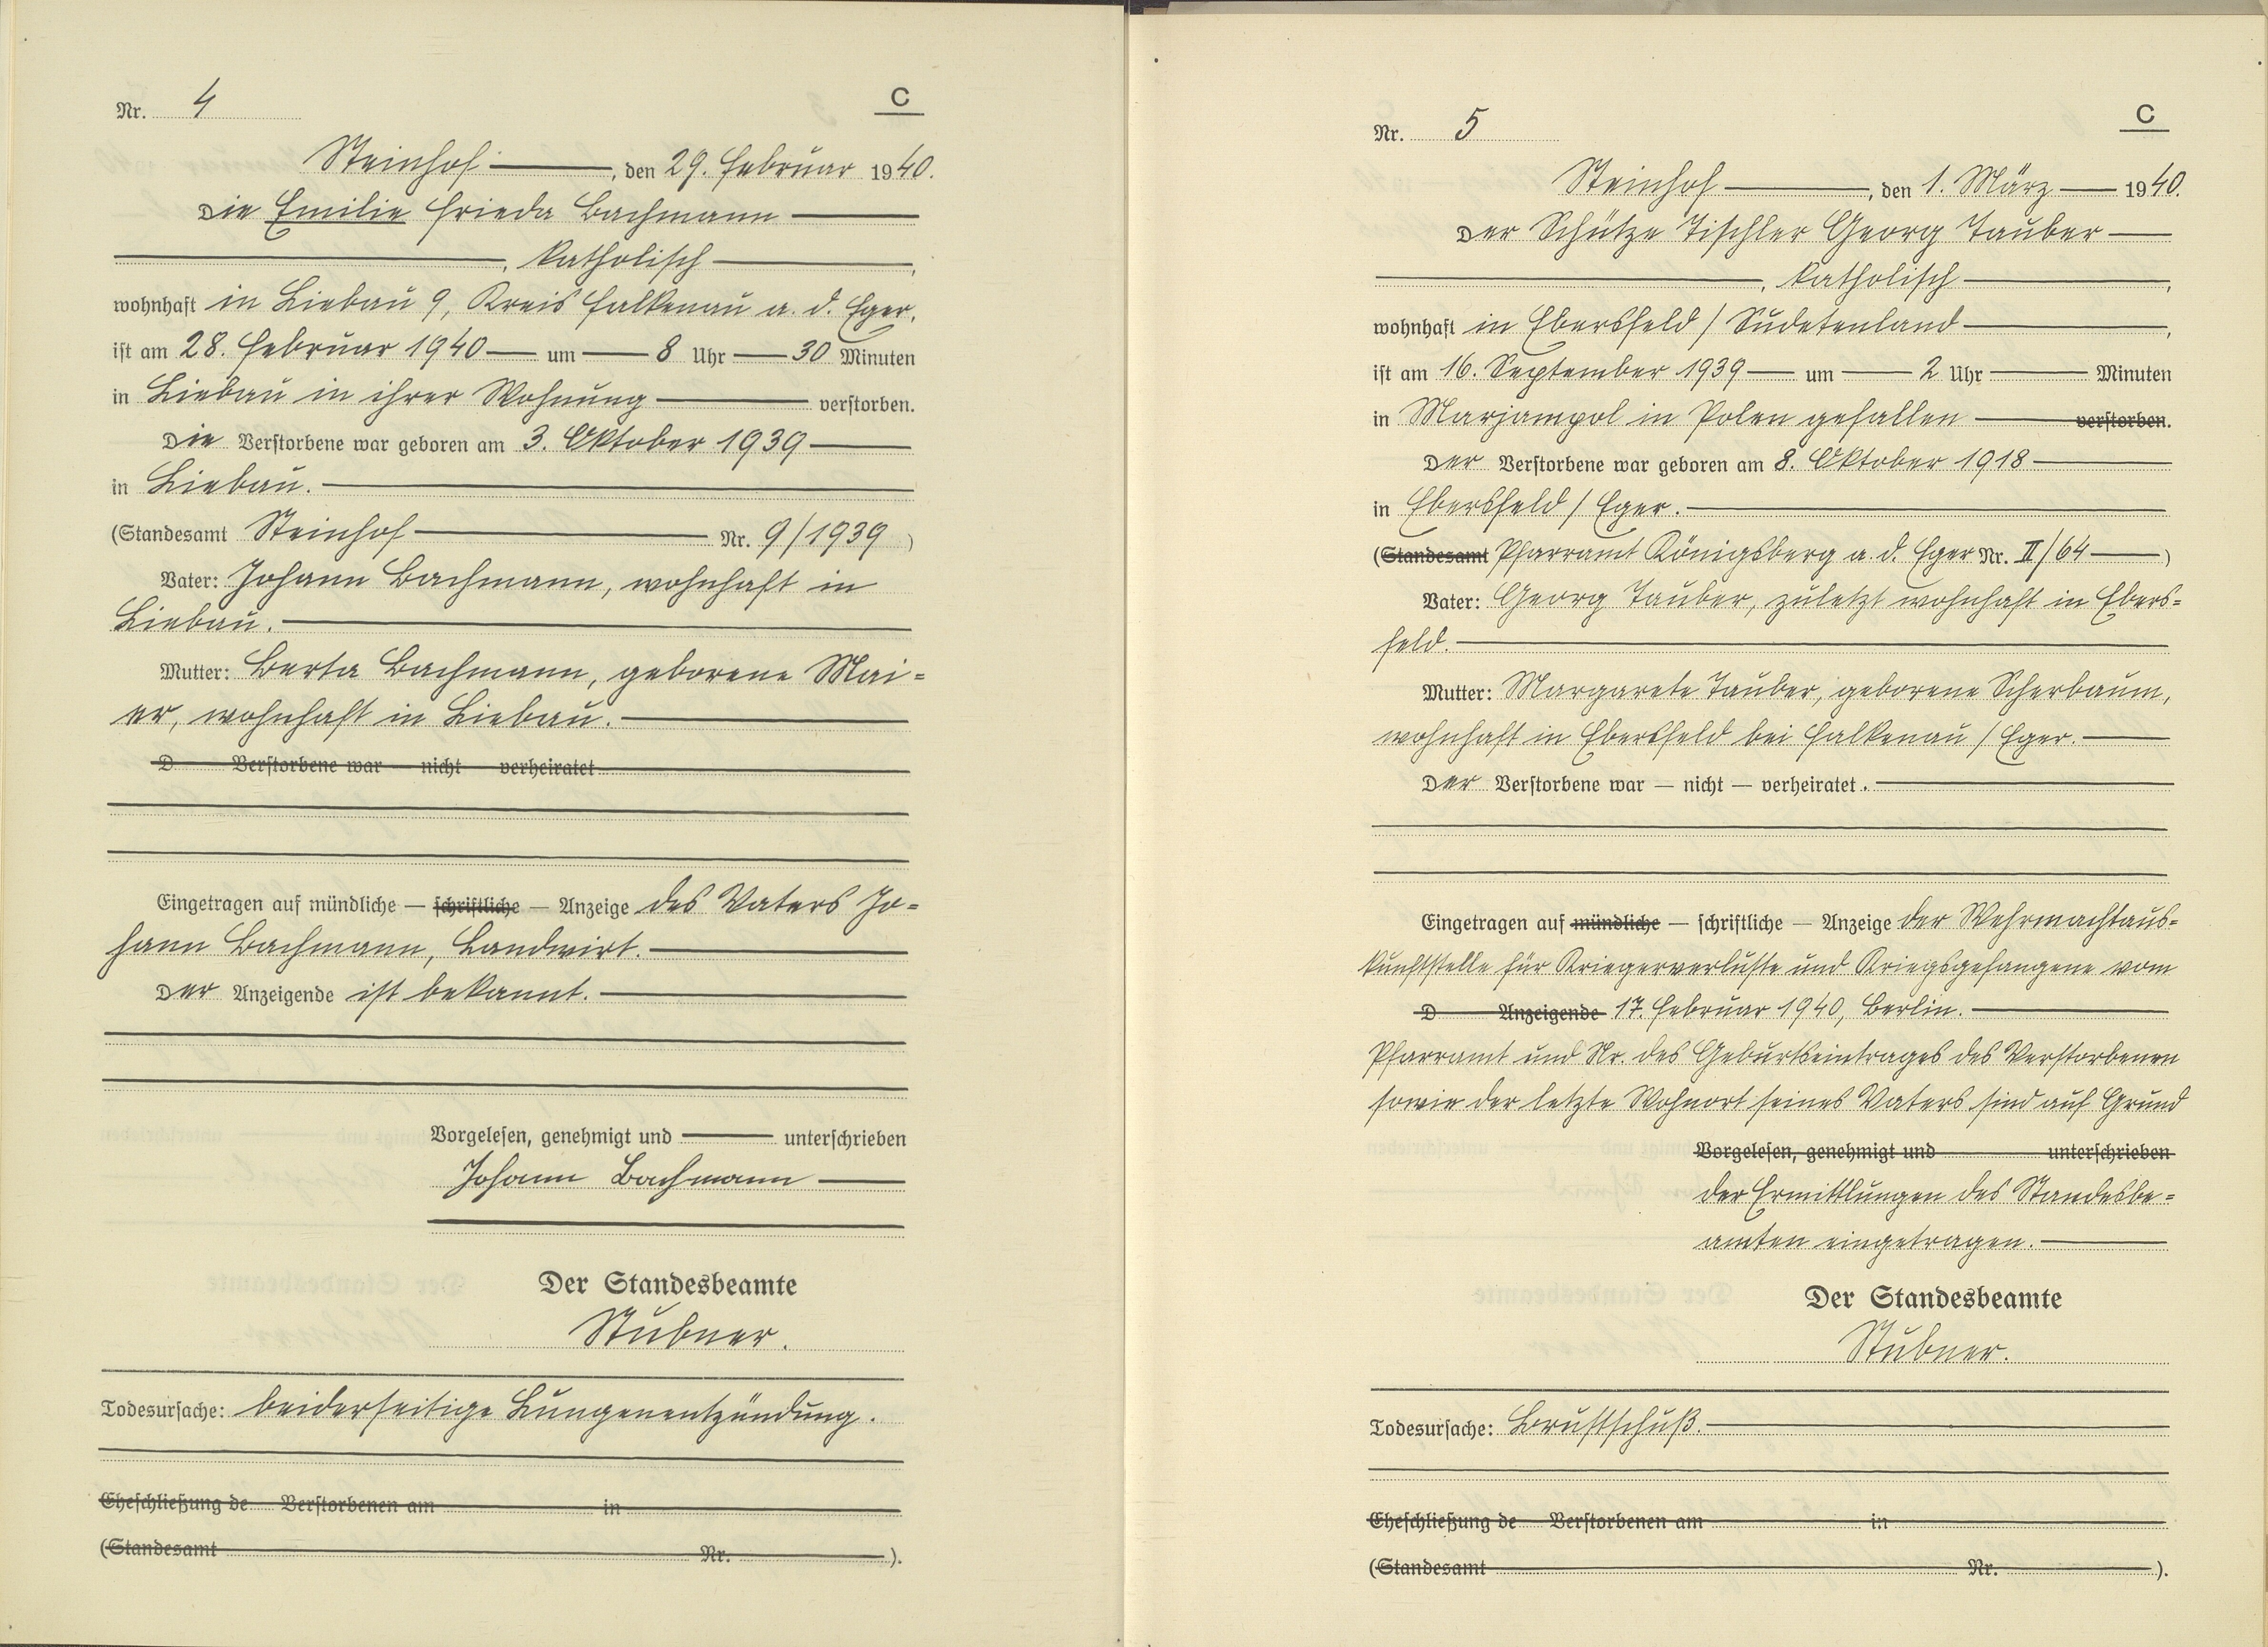 Nr. 4
C
Steinhof, den 29. Februar 1940.
Die Emilie Frieda Bachmann
, katholisch,
wohnhaft in Liebau 9, Kreis Falkenau a. d. Eger,
ist am 28. Februar 1940 um 8 Uhr 30 Minuten
in Liebau in ihrer Wohnung verstorben.
Die Verstorbene war geboren am 3. Oktober 1939
in Liebau.
(Standesamt Steinhof Nr. 9/1939)
Vater: Johann Bachmann, wohnhaft in
Liebau.
Mutter: Berta Bachmann, geborene Mai=
er, wohnhaft in Liebau.
D Verstorbene war nicht verheiratet
Eingetragen auf mündliche — schriftliche — Anzeige des Vaters Jo=
hann Bachmann, Landwirt.
Der Anzeigende ist bekannt.
Vorgelesen, genehmigt und unterschrieben
Johann Bachmann
Der Standesbeamte
Stubner.
Todesursache: beiderseitige Lungenentzündung.
Eheschließung de Verstorbenen am in
(Standesamt Nr. ).
Nr. 5
C
Steinhof, den 1. März 1940.
Der Schütze Tischler Georg Tauber
, katholisch,
wohnhaft in Ebersfeld / Sudetenland,
ist am 16. September 1939 um 2 Uhr Minuten
in Marjampol in Polen gefallen verstorben.
Der Verstorbene war geboren am 8. Oktober 1918
in Ebersfeld / Eger.
(Standesamt Pfarramt Königsberg a. d. Eger Nr. II/64)
Vater: Georg Tauber, zuletzt wohnhaft in Ebers=
feld.
Mutter: Margarete Tauber, geborene Scherbaum,
wohnhaft in Ebersfeld bei Falkenau / Eger.
Der Verstorbene war — nicht — verheiratet.
Eingetragen auf mündliche — schriftliche — Anzeige der Wehrmachtaus=
kunftstelle für Kriegerverluste und Kriegsgefangene vom
D Anzeigende 17. Februar 1940, Berlin.
Pfarramt und Nr. des Geburtseintrages des Verstorbenen
sowie der letzte Wohnort seines Vaters sind auf Grund
Vorgelesen, genehmigt und unterschrieben
der Ermittlungen des Standesbe=
amten eingetragen.
Der Standesbeamte
Stubner.
Todesursache: Brustschuß.
Eheschließung de Verstorbenen am in
(Standesamt Nr. ).